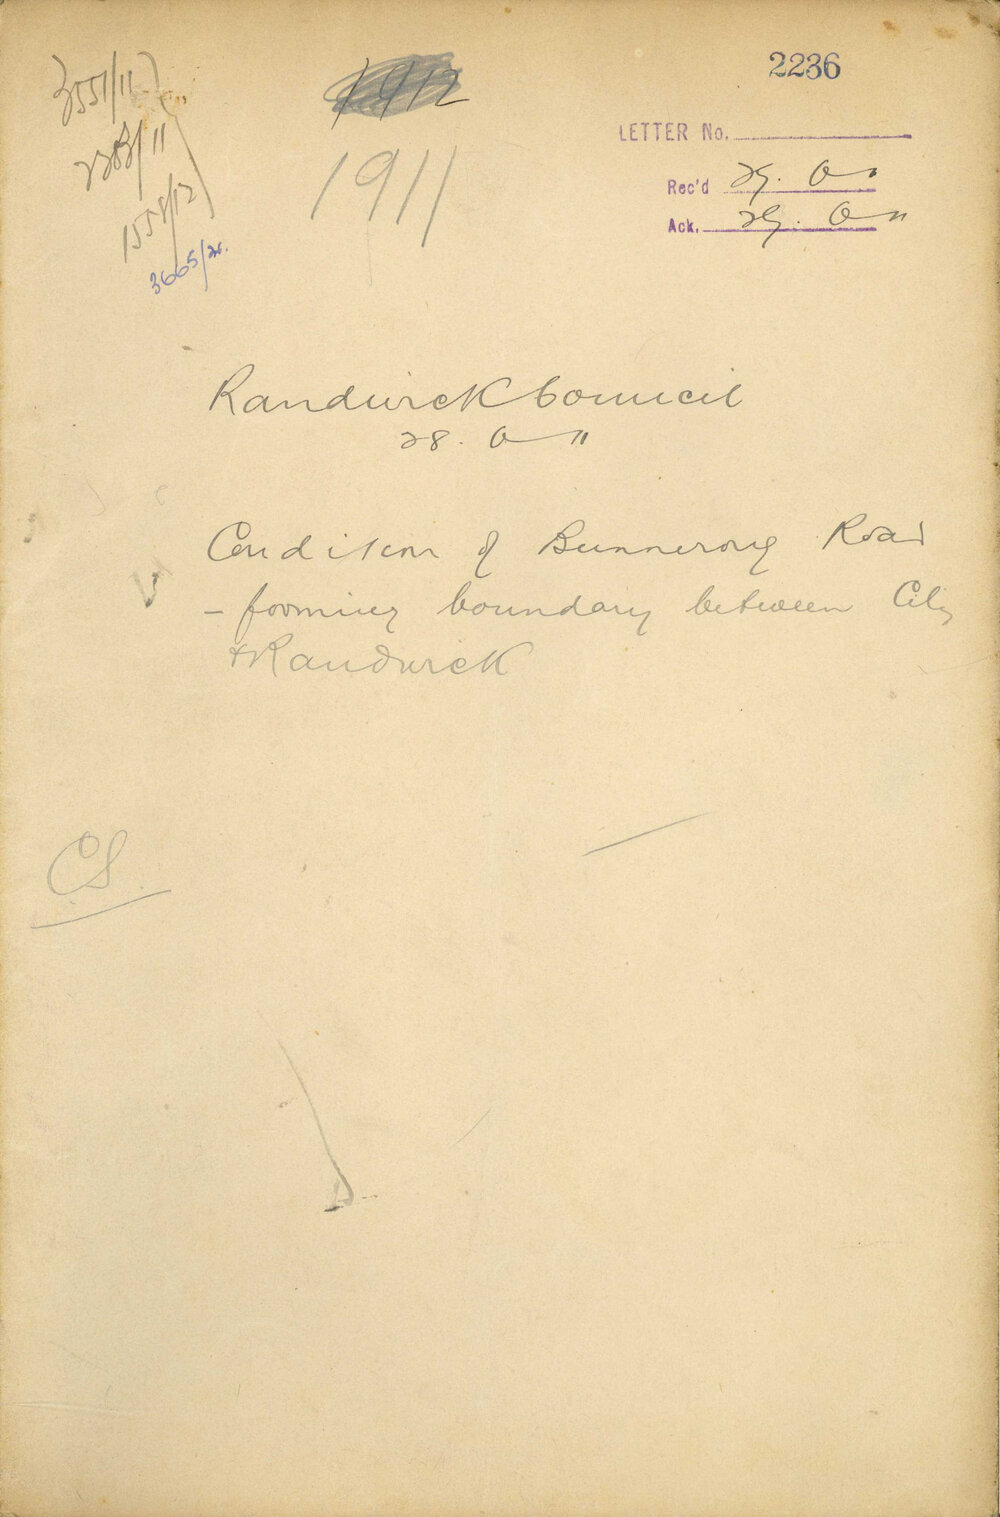 2236
LETTER No.
Rec'd 29.
Ack. 29.
3551/11
1558/12
3665/21.
1912
1911
Randwick Council
28. 11
Condition of Bunnerong Road
- forming boundary between City
& Randwick
CS